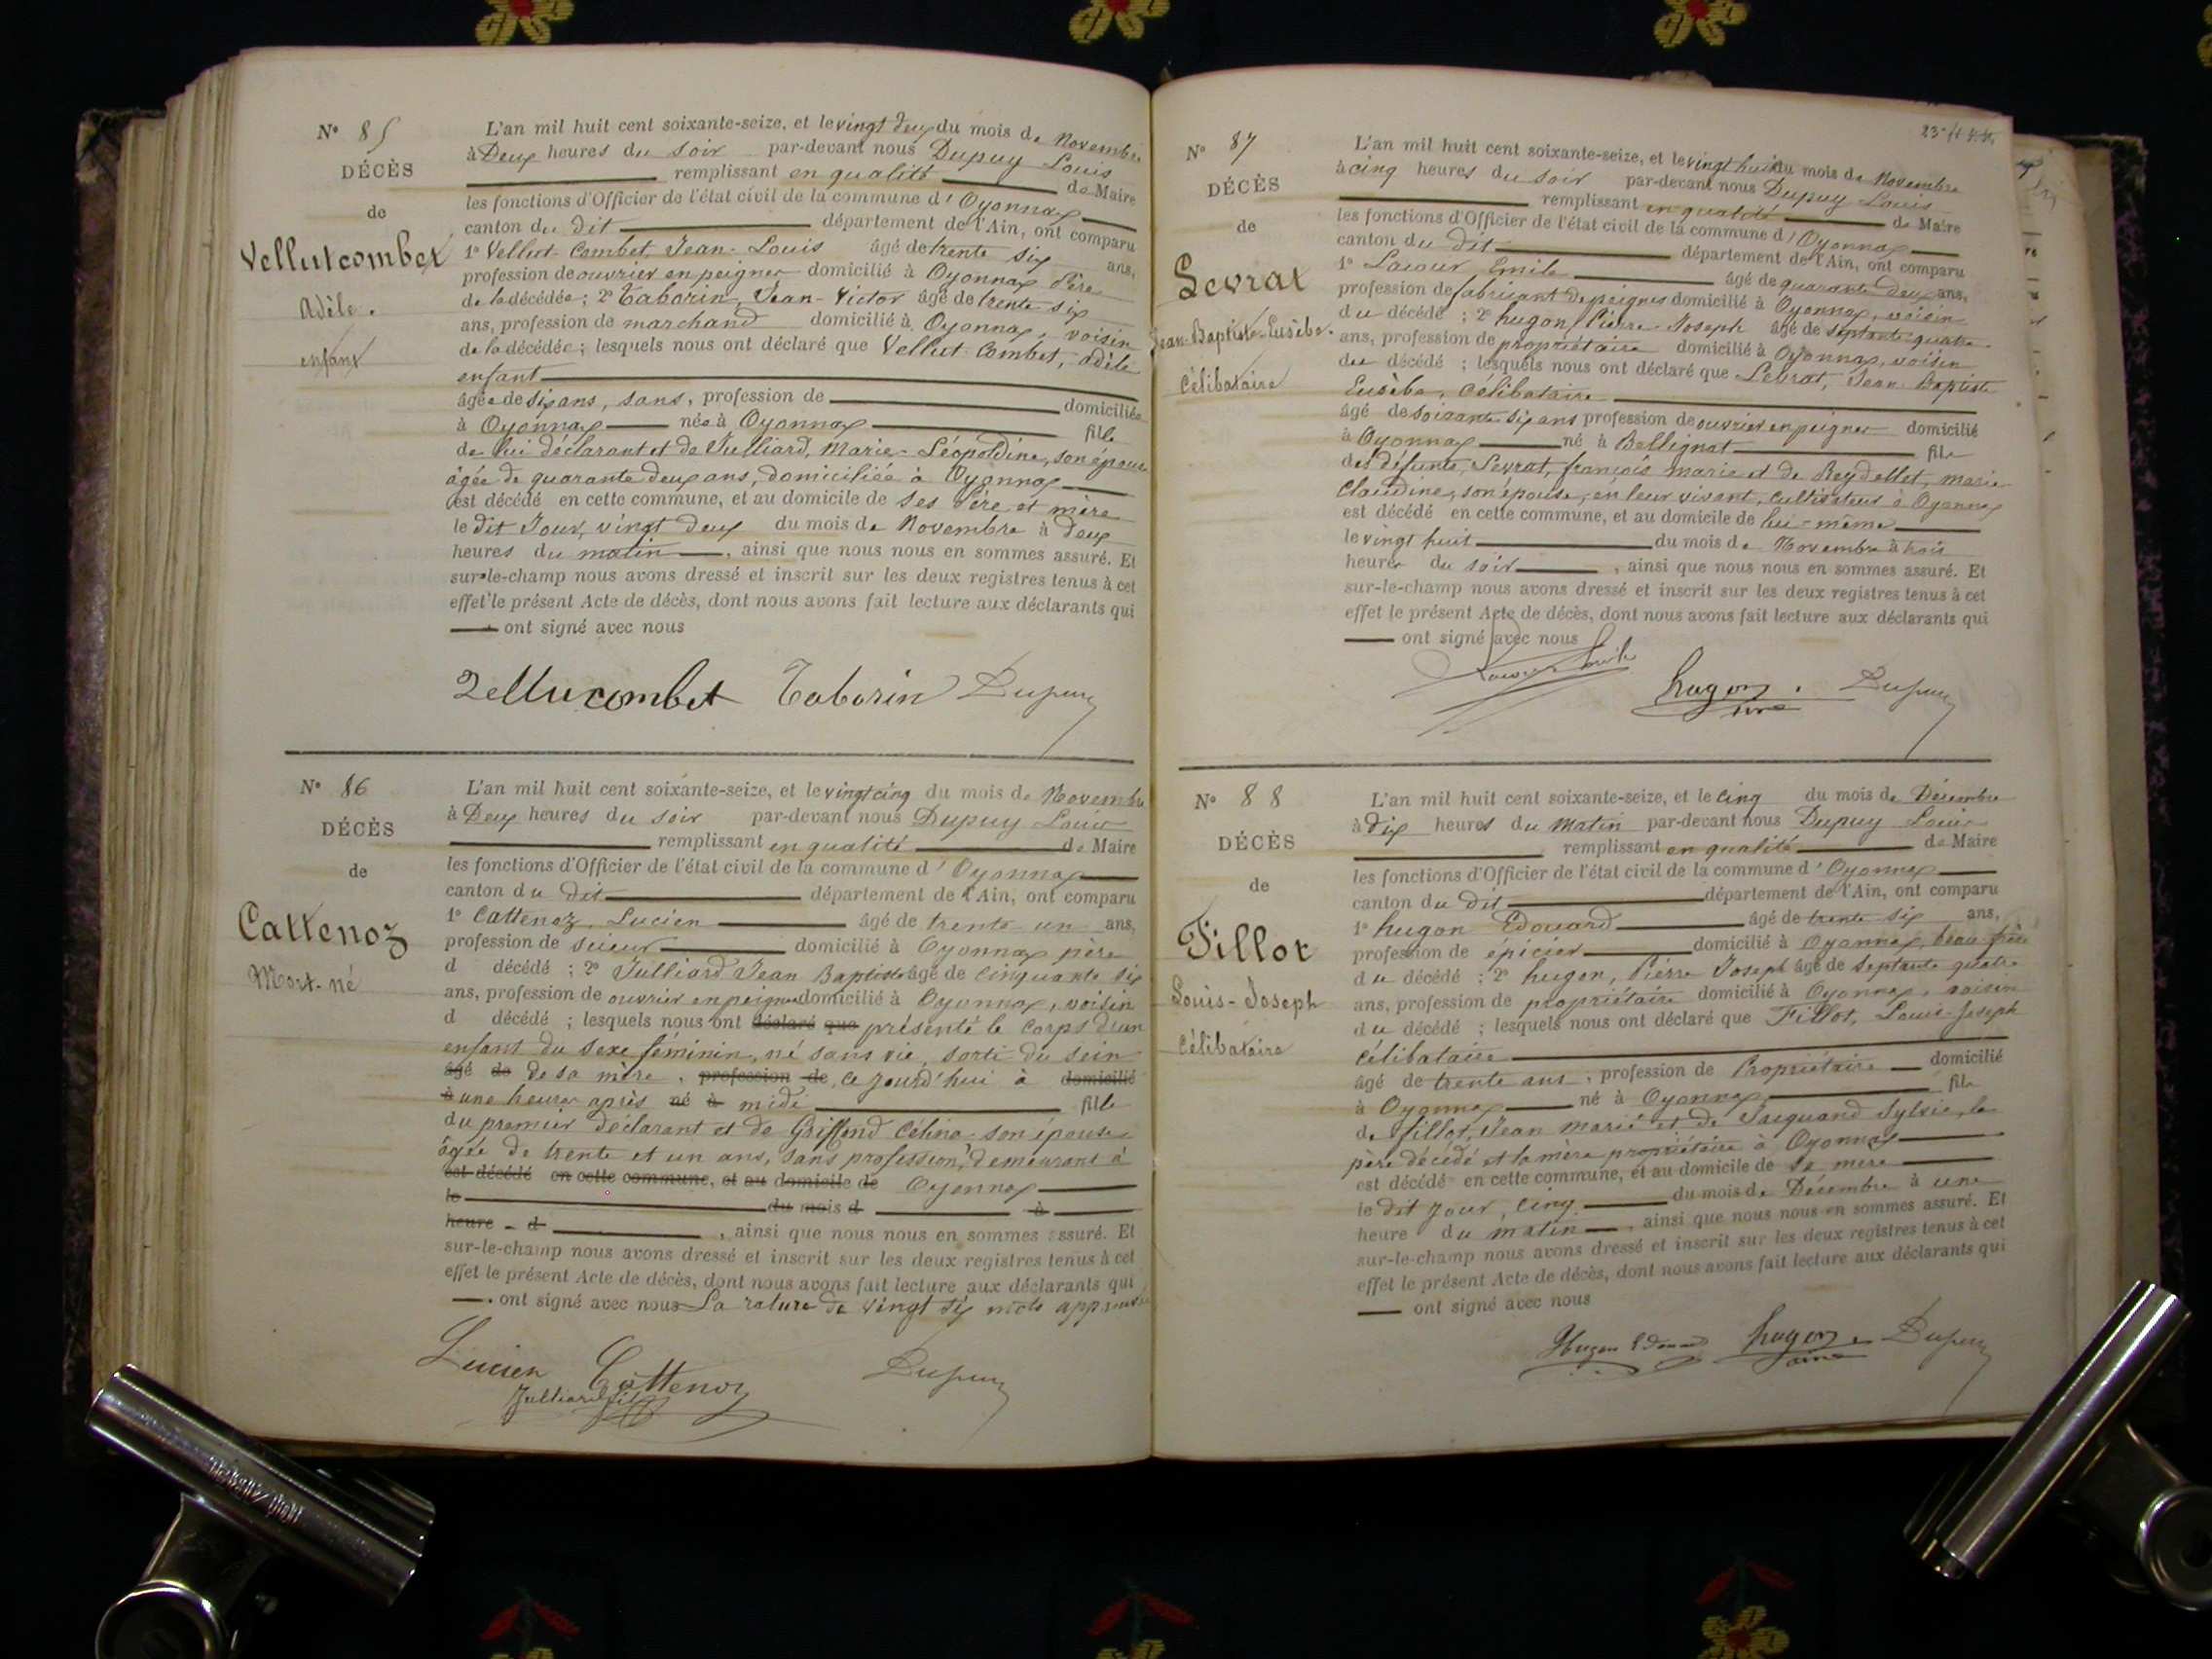 N° 85
DÉCÈS
de
Vellutcombet
Adèle.
enfant
L'an mil huit cent soixante-seize, et le vingt deux du mois de Novembre
à Deux heures du soir par-devant nous Dupuy Louis
remplissant en qualité de Maire
les fonctions d'Officier de l'état civil de la commune d'Oyonnax
canton du dit département de l'Ain, ont comparu
1° Vellut-Combet, Jean-Louis âgé de trente six ans,
profession de ouvrier en peignes domicilié à Oyonnax Père
de la décédée ; 2° Taborin, Jean-Victor âgé de trente six
ans, profession de marchand domicilié à Oyonnax, voisin
de la décédée ; lesquels nous ont déclaré que Vellut-Combet, adèle
enfant
âgée de six ans, sans, profession de domiciliée
à Oyonnax née à Oyonnax fille
de lui déclarant et de Julliard, Marie-Léopoldine, son épouse
âgée de quarante deux ans, domiciliée à Oyonnax
est décédé en cette commune, et au domicile de ses Père et mère
le dit Jour, vingt deux du mois de Novembre à deux
heures du matin, ainsi que nous nous en sommes assuré. Et
sur-le-champ nous avons dressé et inscrit sur les deux registres tenus à cet
effet le présent Acte de décès, dont nous avons fait lecture aux déclarants qui
ont signé avec nous
Vellucombet Taborin Dupuy
N° 86
DÉCÈS
de
Cattenoz
Mort-né
L'an mil huit cent soixante-seize, et le vingt cinq du mois de Novembre
à Deux heures du soir par-devant nous Dupuy Louis
remplissant en qualité de Maire
les fonctions d'Officier de l'état civil de la commune d'Oyonnax
canton du dit département de l'Ain, ont comparu
1° Cattenoz, Lucien âgé de trente un ans,
profession de scieur domicilié à Oyonnax père
d décédé ; 2° Julliard Jean Baptiste âgé de cinquante six
ans, profession de ouvrier en peignes domicilié à Oyonnax, voisin
d décédé ; lesquels nous ont déclaré que présenté le corps d'un
enfant du sexe féminin, né sans vie, sorti du sein
âgé de de sa mère, profession de, ce jourd'hui à domicilié
à une heure après né à midi fille
du premier déclarant et de Griffond Céline son épouse
âgée de trente et un ans, sans profession, demeurant à
est décédé en cette commune, et au domicile de Oyonnax
le du mois d à
heure d, ainsi que nous nous en sommes assuré. Et
sur-le-champ nous avons dressé et inscrit sur les deux registres tenus à cet
effet le présent Acte de décès, dont nous avons fait lecture aux déclarants qui
ont signé avec nous La rature de vingt six mots approuvée
Lucien Cattenoz Dupuy
Julliard
N° 87
DÉCÈS
de
Levrat
Jean-Baptiste-Eusèbe.
Célibataire
L'an mil huit cent soixante-seize, et le vingt huit du mois de Novembre
à cinq heures du soir par-devant nous Dupuy Louis
remplissant en qualité de Maire
les fonctions d'Officier de l'état civil de la commune d'Oyonnax
canton du dit département de l'Ain, ont comparu
1° Lacour Emile âgé de quarante deux ans,
profession de fabricant de peignes domicilié à Oyonnax, voisin
du décédé ; 2° hugon, Pierre-Joseph âgé de septante quatre
ans, profession de propriétaire domicilié à Oyonnax, voisin
du décédé ; lesquels nous ont déclaré que Levrat, Jean-Baptiste
Eusèbe, célibataire
âgé de soixante six ans profession de ouvrier en peignes domicilié
à Oyonnax né à Bellignat fils
des défunts, Levrat, françois marie et de Reydellet, marie
Claudine, son épouse, en leur vivant, cultivateurs à Oyonnax
est décédé en cette commune, et au domicile de lui-même
le vingt huit du mois de Novembre à trois
heures du soir, ainsi que nous nous en sommes assuré. Et
sur-le-champ nous avons dressé et inscrit sur les deux registres tenus à cet
effet le présent Acte de décès, dont nous avons fait lecture aux déclarants qui
ont signé avec nous
Lacour Emile hugon aîné Dupuy
N° 88
DÉCÈS
de
Fillot
Louis-Joseph
Célibataire
L'an mil huit cent soixante-seize, et le cinq du mois de Décembre
à dix heures du Matin par-devant nous Dupuy Louis
remplissant en qualité de Maire
les fonctions d'Officier de l'état civil de la commune d'Oyonnax
canton du dit département de l'Ain, ont comparu
1° hugon Edouard âgé de trente six ans,
profession de épicier domicilié à Oyonnax, beau-frère
du décédé ; 2° hugon, Pierre Joseph âgé de septante quatre
ans, profession de propriétaire domicilié à Oyonnax, voisin
du décédé ; lesquels nous ont déclaré que Fillot, Louis-Joseph
célibataire
âgé de trente ans, profession de Propriétaire domicilié
à Oyonnax né à Oyonnax fils
de fillot, Jean Marie et de Jacquand Sylvie, le
père décédé et la mère propriétaire à Oyonnax
est décédé en cette commune, et au domicile de sa mère
le dit jour, cinq du mois de Décembre à une
heure du matin, ainsi que nous nous en sommes assuré. Et
sur-le-champ nous avons dressé et inscrit sur les deux registres tenus à cet
effet le présent Acte de décès, dont nous avons fait lecture aux déclarants qui
ont signé avec nous
Hugon Edouard hugon aîné Dupuy